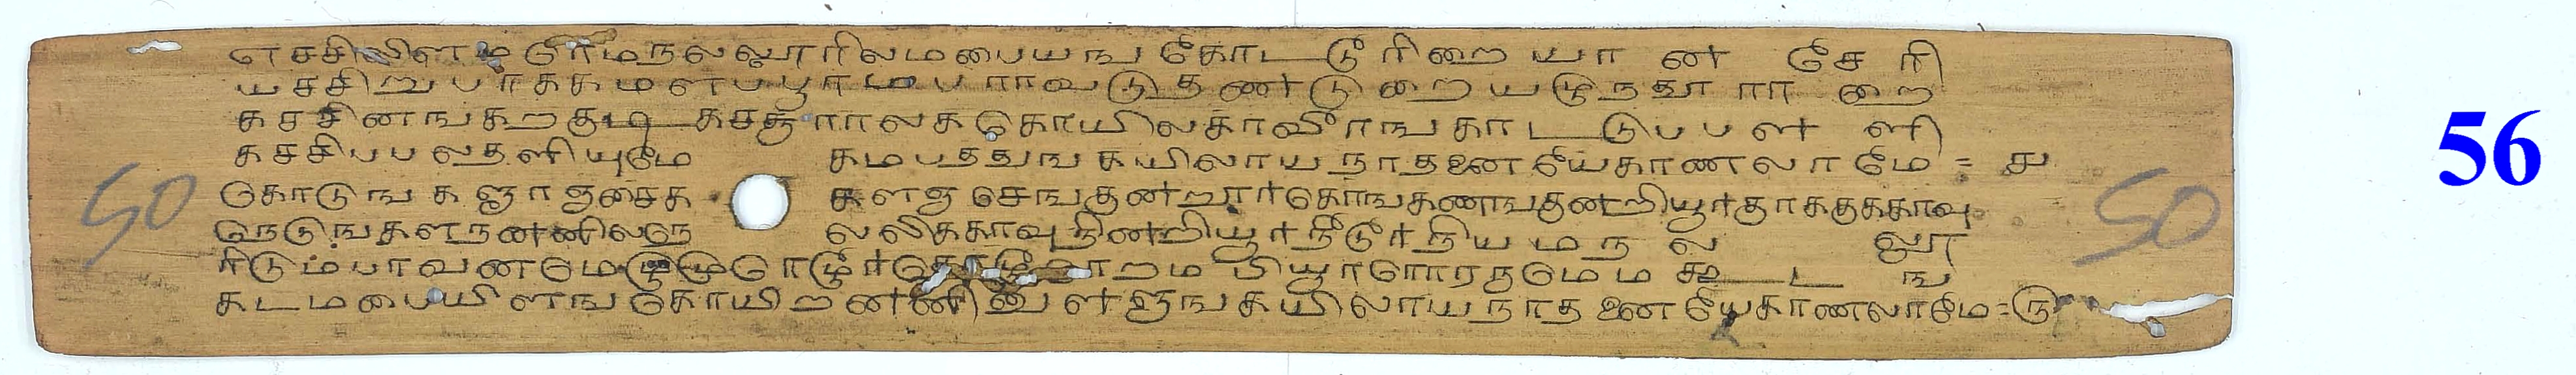 எசசிலிளமரமநலலூரிலமபையங கோடடூரிறையான சேரி
யசசிறுபாககமளபபூரமபராவடுதணடுறையடுநதூராறை
கசசினஙகறகுடிகசசூராலககோயிலகாவீரஙகாடடுபபளளி
கசசிபபலதளியுமே கமபததுஙகயிலாயநாதனையேகாணலாமே = ௪
கொடுஙகஞாஞசைக களஞசெஙகுனறூரகொஙகணஙகுனறியூரதாககுககாவு
நெடுஙகளநனனிலநெ லலிககாவுநினறியூரநீடூரநியமநலலூ
ரிடுமபாவனமெழுமூரெழூரதொழூரறமபியூரெரநதுமெமகூடங
கடமபையிளஙகோயிறனனிலுளளுஙகயிலாயநாதனையேகாணலாமே = ௫
50
50
56